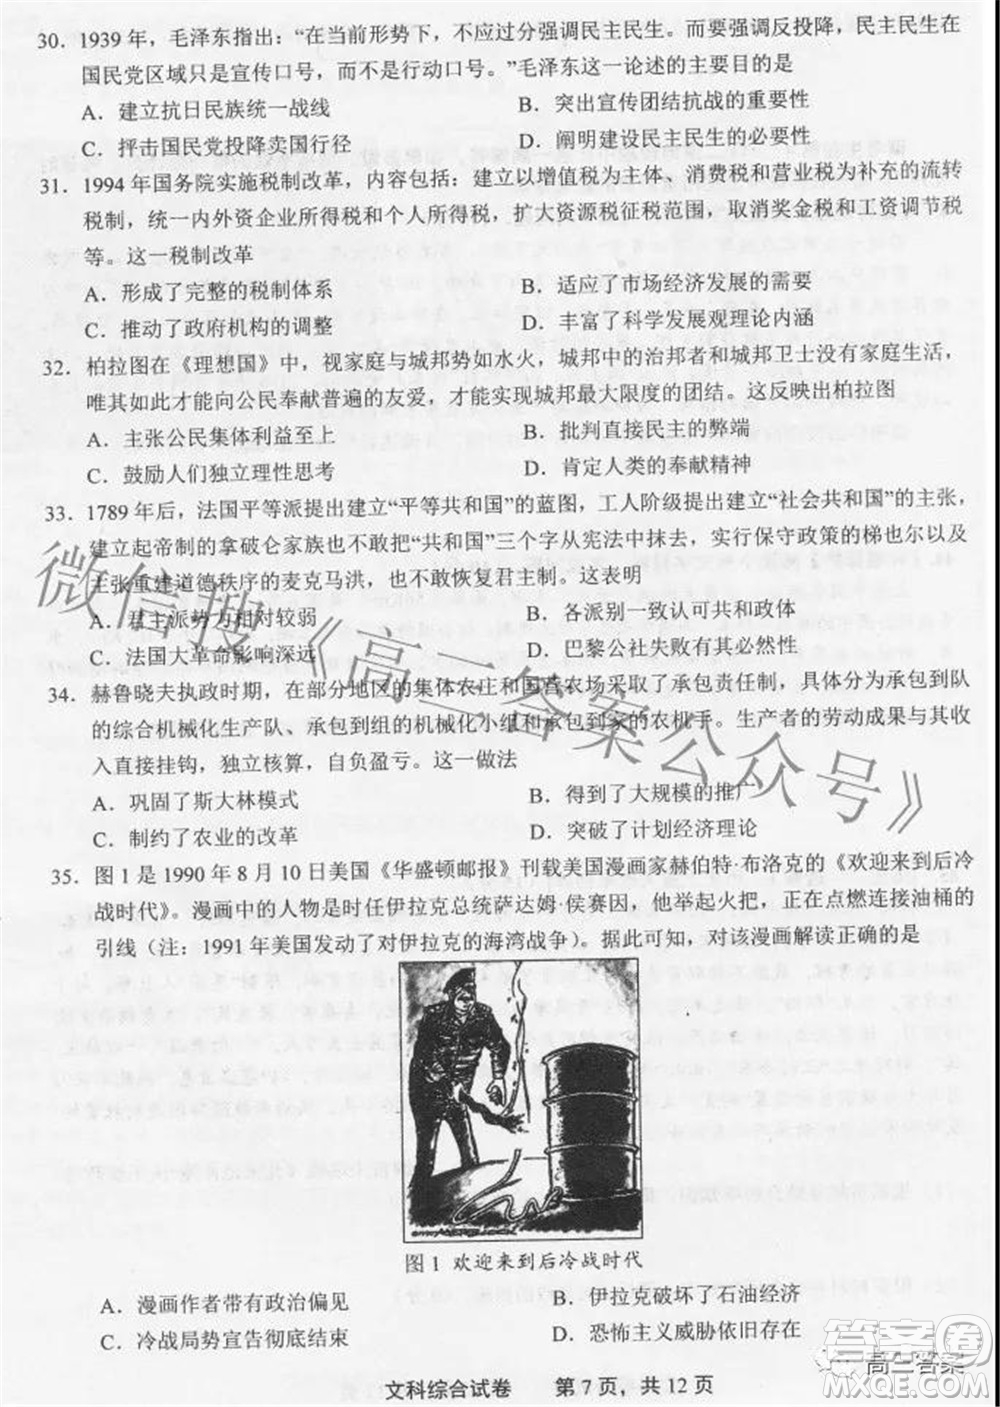 30．1939 年，毛泽东指出：“在当前形势下，不应过分强调民主民生。而要强调反投降，民主民生在
国民党区域只是宣传口号，而不是行动口号。”毛泽东这一论述的主要目的是
A．建立抗日民族统一战线
B．突出宣传团结抗战的重要性
C．抨击国民党投降卖国行径
D．阐明建设民主民生的必要性
31．1994 年国务院实施税制改革，内容包括：建立以增值税为主体、消费税和营业税为补充的流转
税制，统一内外资企业所得税和个人所得税，扩大资源税征税范围，取消奖金税和工资调节税
等。这一税制改革
A．形成了完整的税制体系
B．适应了市场经济发展的需要
C．推动了政府机构的调整
D．丰富了科学发展观理论内涵
32．柏拉图在《理想国》中，视家庭与城邦势如水火，城邦中的治邦者和城邦卫士没有家庭生活，
唯其如此才能向公民奉献普遍的友爱，才能实现城邦最大限度的团结。这反映出柏拉图
A．主张公民集体利益至上
B．批判直接民主的弊端
C．鼓励人们独立理性思考
D．肯定人类的奉献精神
33．1789 年后，法国平等派提出建立“平等共和国”的蓝图，工人阶级提出建立“社会共和国”的主张，
建立起帝制的拿破仑家族也不敢把“共和国”三个字从宪法中抹去，实行保守政策的梯也尔以及
主张重建道德秩序的麦克马洪，也不敢恢复君主制。这表明
A．君主派势力相对较弱
B．各派别一致认可共和政体
C．法国大革命影响深远
D．巴黎公社失败有其必然性
34．赫鲁晓夫执政时期，在部分地区的集体农庄和国营农场采取了承包责任制，具体分为承包到队
的综合机械化生产队、承包到组的机械化小组和承包到家的农机手。生产者的劳动成果与其收
入直接挂钩，独立核算，自负盈亏。这一做法
A．巩固了斯大林模式
B．得到了大规模的推广
C．制约了农业的改革
D．突破了计划经济理论
35．图 1 是 1990 年 8 月 10 日美国《华盛顿邮报》刊载美国漫画家赫伯特·布洛克的《欢迎来到后冷
战时代》。漫画中的人物是时任伊拉克总统萨达姆·侯赛因，他举起火把，正在点燃连接油桶的
引线（注：1991 年美国发动了对伊拉克的海湾战争）。据此可知，对该漫画解读正确的是
图 1 欢迎来到后冷战时代
A．漫画作者带有政治偏见
B．伊拉克破坏了石油经济
C．冷战局势宣告彻底结束
D．恐怖主义威胁依旧存在
文科综合试卷 第 7 页，共 12 页
微信搜《高三答案公众号》
答案圈
高三答案